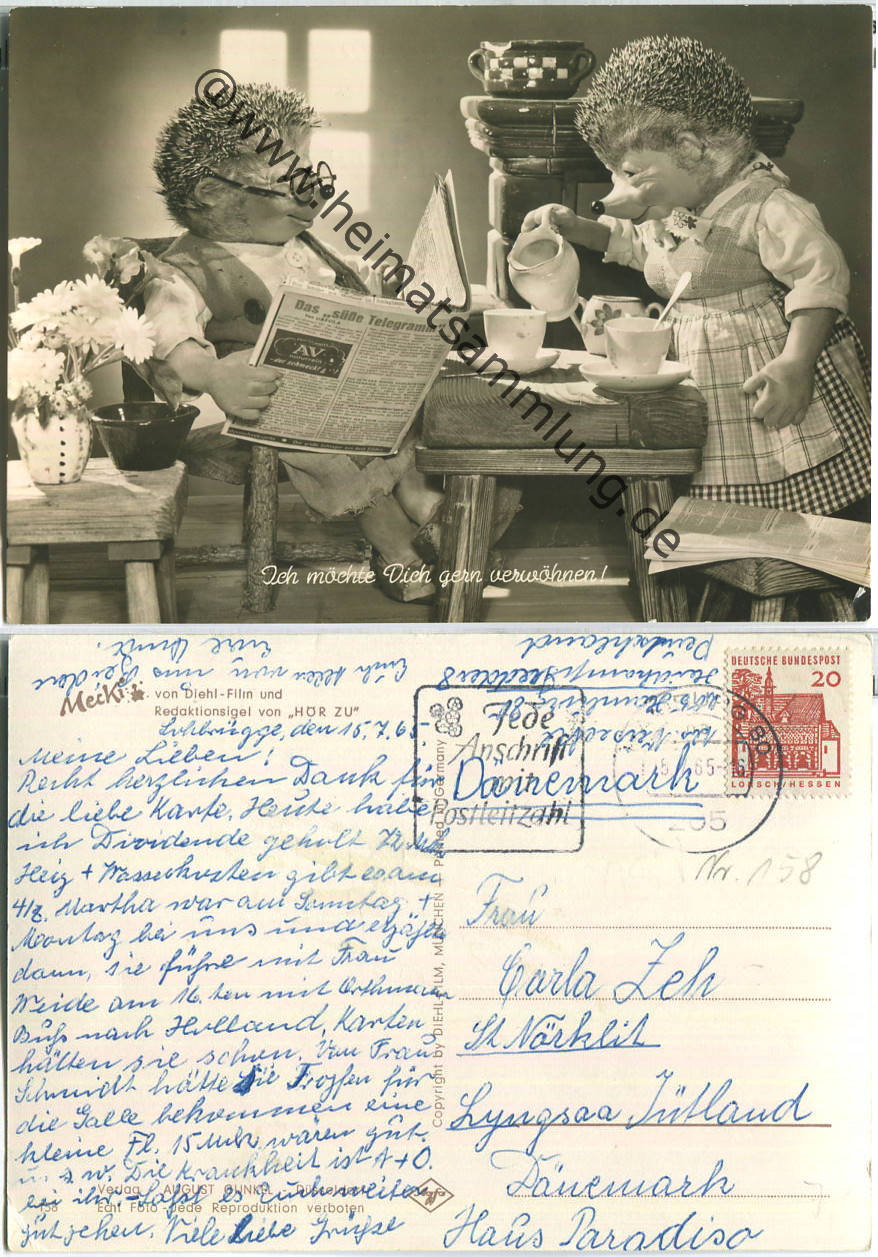 ©www.heimatsammlung.de
Das „süße Telegramm“
AV
Ich möchte Dich gern verwöhnen!
Euch Allen von uns beiden
Mecki
von Diehl-Film und
Redaktionsigel von „HÖR ZU“
Lohbrügge, den 15.7.65.
Meine Lieben!
Recht herzlichen Dank für
die liebe Karte. Heute habe
ich Dividende geholt 72 Mk
Heiz + Wasserkosten gibt es am
4/8. Martha war am Sonntag +
Montag bei uns und erzählte
dann, sie führe mit Frau
Weide am 16.ten mit
nach Holland, Karten
hätten sie schon. Von Frau
Schmidt hätte sie Tropfen für
die Galle bekommen eine
kleine Fl. 15 Mk wären gut.
u. s. w. Die Krankheit ist A + O.
bei ihr. Lasst es Euch weiter
gut gehen. Viele liebe Grüsse
Verlag AUGUST GUNKEL Düsseldorf
158
Echt Foto - Jede Reproduktion verboten
Copyright by DIEHL-FILM, MÜNCHEN — Printed in Germany
Agfa
Deutschland
Jede
Anschrift
mit
Postleitzahl
205
DEUTSCHE BUNDESPOST
20
LORSCH/HESSEN
Dänemark
Nr. 158
Frau
Carla Zeh
St Nörklit
Lyngsaa Jütland
Dänemark
Haus Paradiso